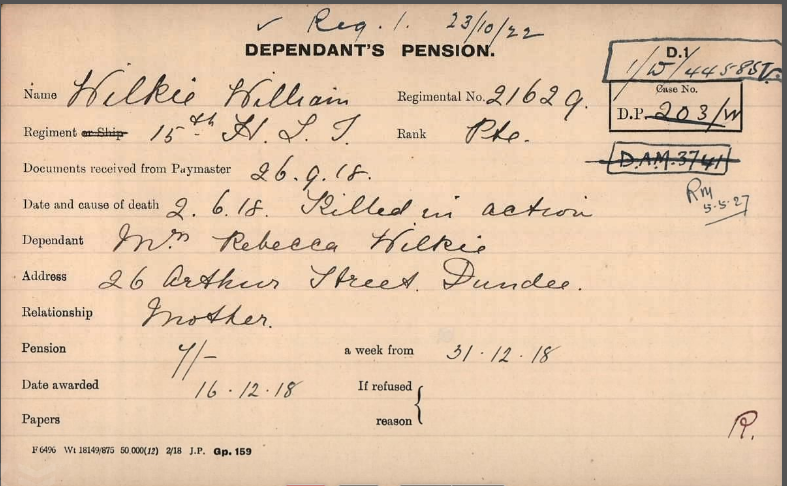 ✓ Reg. 1. 23/10/22
DEPENDANT'S PENSION.
D.1
1/W/44585
Name Wilkie William Regimental No. 21629.
Case No.
D.P. 203/W
Regiment or Ship 15th H. L. I. Rank Pte.
D.A.M. 3741
Documents received from Paymaster 26.9.18.
RM
5.5.27
Date and cause of death 2.6.18. Killed in action
Dependant Mrs Rebecca Wilkie
Address 26 Arthur Street. Dundee.
Relationship Mother.
Pension 7/- a week from 31.12.18
Date awarded 16.12.18 If refused
Papers reason
R.
F6496 Wt 18149/875 50.000(12) 2/18 J.P. Gp. 159